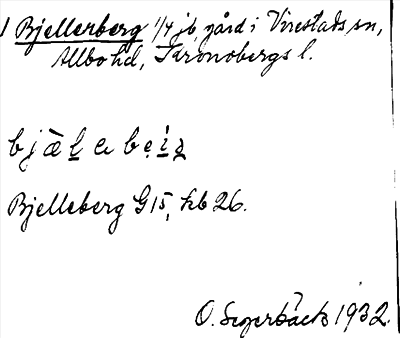 1 Bjellerberg 1/4 jb, gård i Virestads sn,
Allbo hd, Kronobergs l.
bjälebe
Bjelleberg G15, hb 26.
O. Segerbäck 1932.